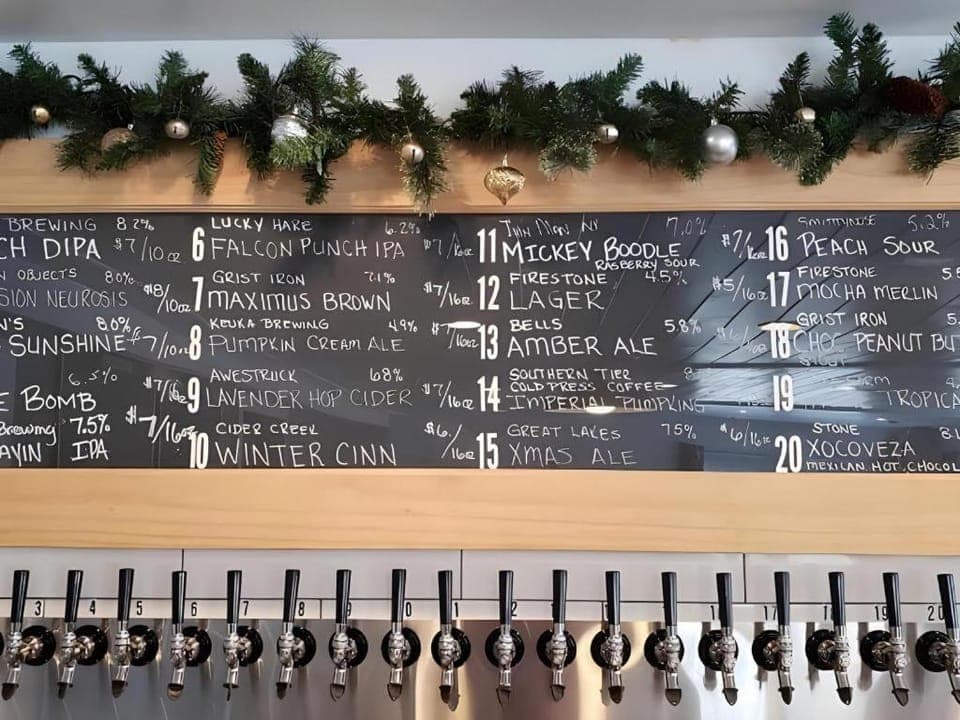 BREWING 8.2%
CH DIPA $7/10oz
N OBJECTS 8.0%
SION NEUROSIS $8/10oz
N'S 8.0%
SUNSHINE $7/10oz
6.5%
E BOMB $7/16oz
Brewing 7.5%
AYIN IPA $7/16oz
6 LUCKY HARE 6.2%
FALCON PUNCH IPA $7/16oz
7 GRIST IRON 7.1%
MAXIMUS BROWN $7/16oz
8 KEUKA BREWING 4.9%
PUMPKIN CREAM ALE $7/16oz
9 AWESTRUCK 6.8%
LAVENDER HOP CIDER $7/16oz
10 CIDER CREEK
WINTER CINN $6/16oz
11 TWIN MAN NY 7.0%
MICKEY BOODLE $7/16oz
RASBERRY SOUR
12 FIRESTONE 4.5%
LAGER $5/16oz
13 BELLS 5.8%
AMBER ALE $6/16oz
14 SOUTHERN TIER
COLD PRESS COFFEE
IMPERIAL PUMPKING
15 GREAT LAKES 7.5%
XMAS ALE $6/16oz
16 SMITTYNIOSE 5.2%
PEACH SOUR
17 FIRESTONE 5.5
MOCHA MERLIN
18 GRIST IRON 5.
CHOC PEANUT BUT
STOUT
19
TROPICA
20 STONE 8.1
XOCOVEZA
MEXICAN HOT CHOCOL
3 4 5 6 7 8 9 10 11 12 17 19 20